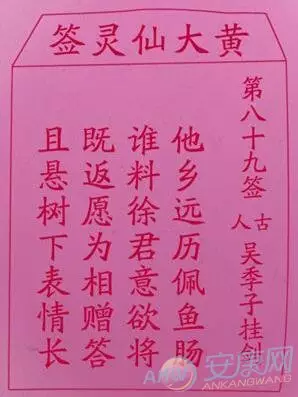 黄大仙灵签
第八十九签
古人 吴季子挂剑
他乡远历佩鱼肠
谁料徐君意欲将
既返愿为相赠答
且悬树下表情长
安康网
ANKANGWANG